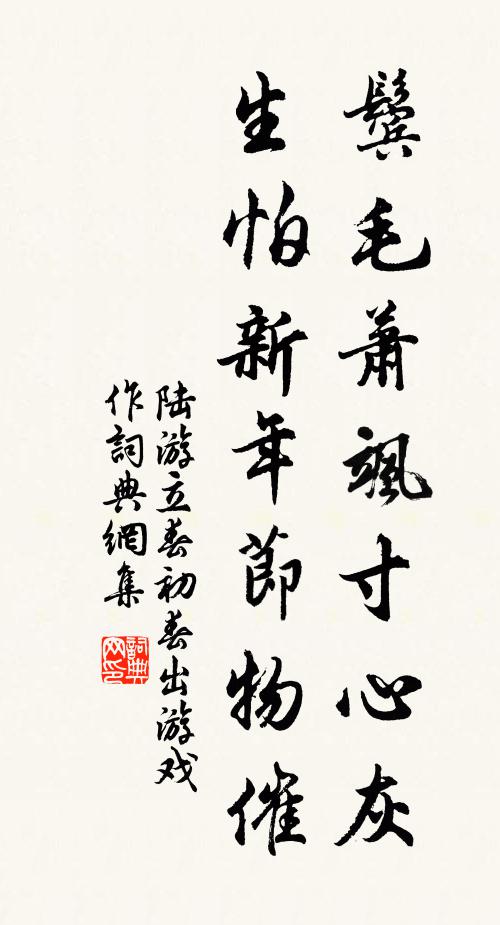 鬢毛蕭颯寸心灰
生怕新年節物催
陆游立春初春出游戏
作詞典網集
詞典网印